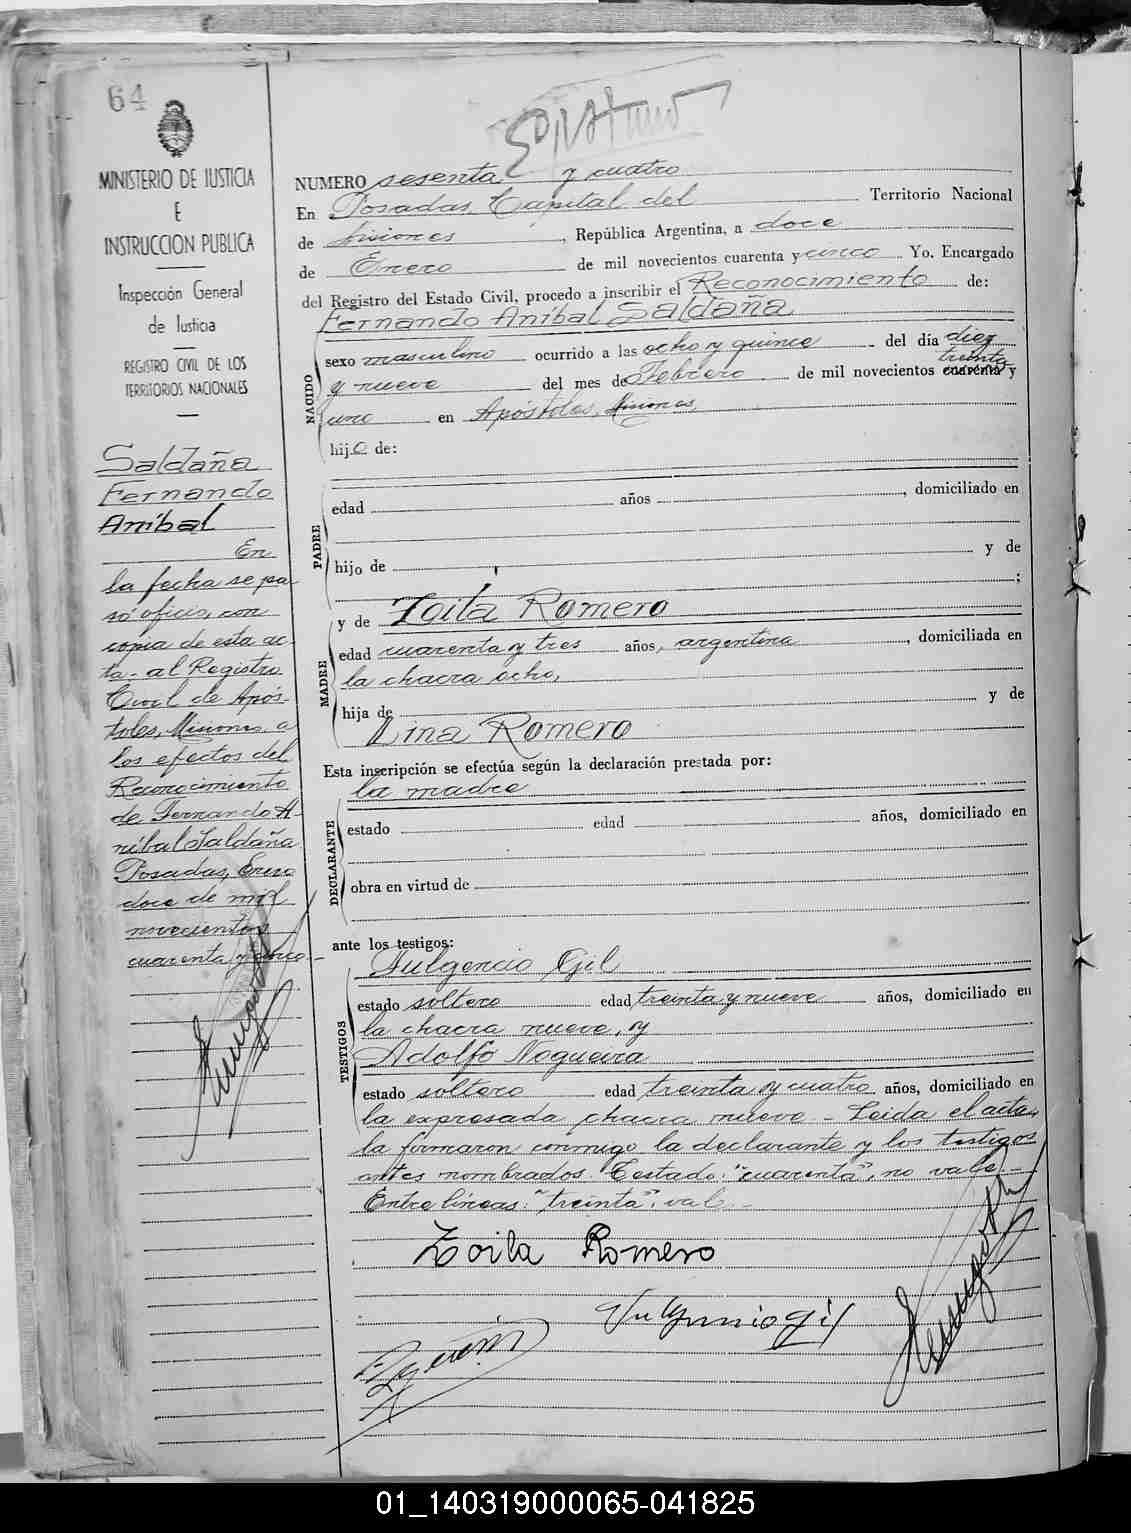 64
MINISTERIO DE JUSTICIA
E
INSTRUCCION PUBLICA
Inspección General
de Justicia
REGISTRO CIVIL DE LOS
TERRITORIOS NACIONALES
Saldaña
Fernando
Anibal
En
la fecha se pa-
só oficio, con
copia de esta ac-
ta- al Registro
Civil de Após-
toles, Misiones a
los efectos del
Reconocimiento
de Fernando A-
nibal Saldaña
Posadas, Enero
doce de mil
novecientos
cuarenta y cinco.-
NUMERO sesenta y cuatro
En Posadas, Capital del Territorio Nacional
de Misiones, República Argentina, a doce
de Enero de mil novecientos cuarenta y cinco Yo. Encargado
del Registro del Estado Civil, procedo a inscribir el Reconocimiento de:
Fernando Anibal Saldaña
NACIDO
sexo masculino ocurrido a las ocho y quince del día diez
treinta
y nueve del mes de Febrero de mil novecientos cuarenta y
uno en Apóstoles, Misiones,
hijo de:
PADRE
edad años, domiciliado en
hijo de y de
;
MADRE
y de Zoila Romero
edad cuarenta y tres años, argentina, domiciliada en
la chacra ocho,
hija de y de
Lina Romero
Esta inscripción se efectúa según la declaración prestada por:
la madre
DECLARANTE
estado edad años, domiciliado en
obra en virtud de
ante los testigos:
TESTIGOS
Fulgencio Gil
estado soltero edad treinta y nueve años, domiciliado en
la chacra nueve, y
Adolfo Nogueira
estado soltero edad treinta y cuatro años, domiciliado en
la expresada chacra nueve - Leida el acta,
la firmaron conmigo la declarante y los testigos
antes nombrados. Testado: "cuarenta", no vale.-
Entre líneas: "treinta": vale.-
Zoila Romero
Fulgencio Gil
01_140319000065-041825